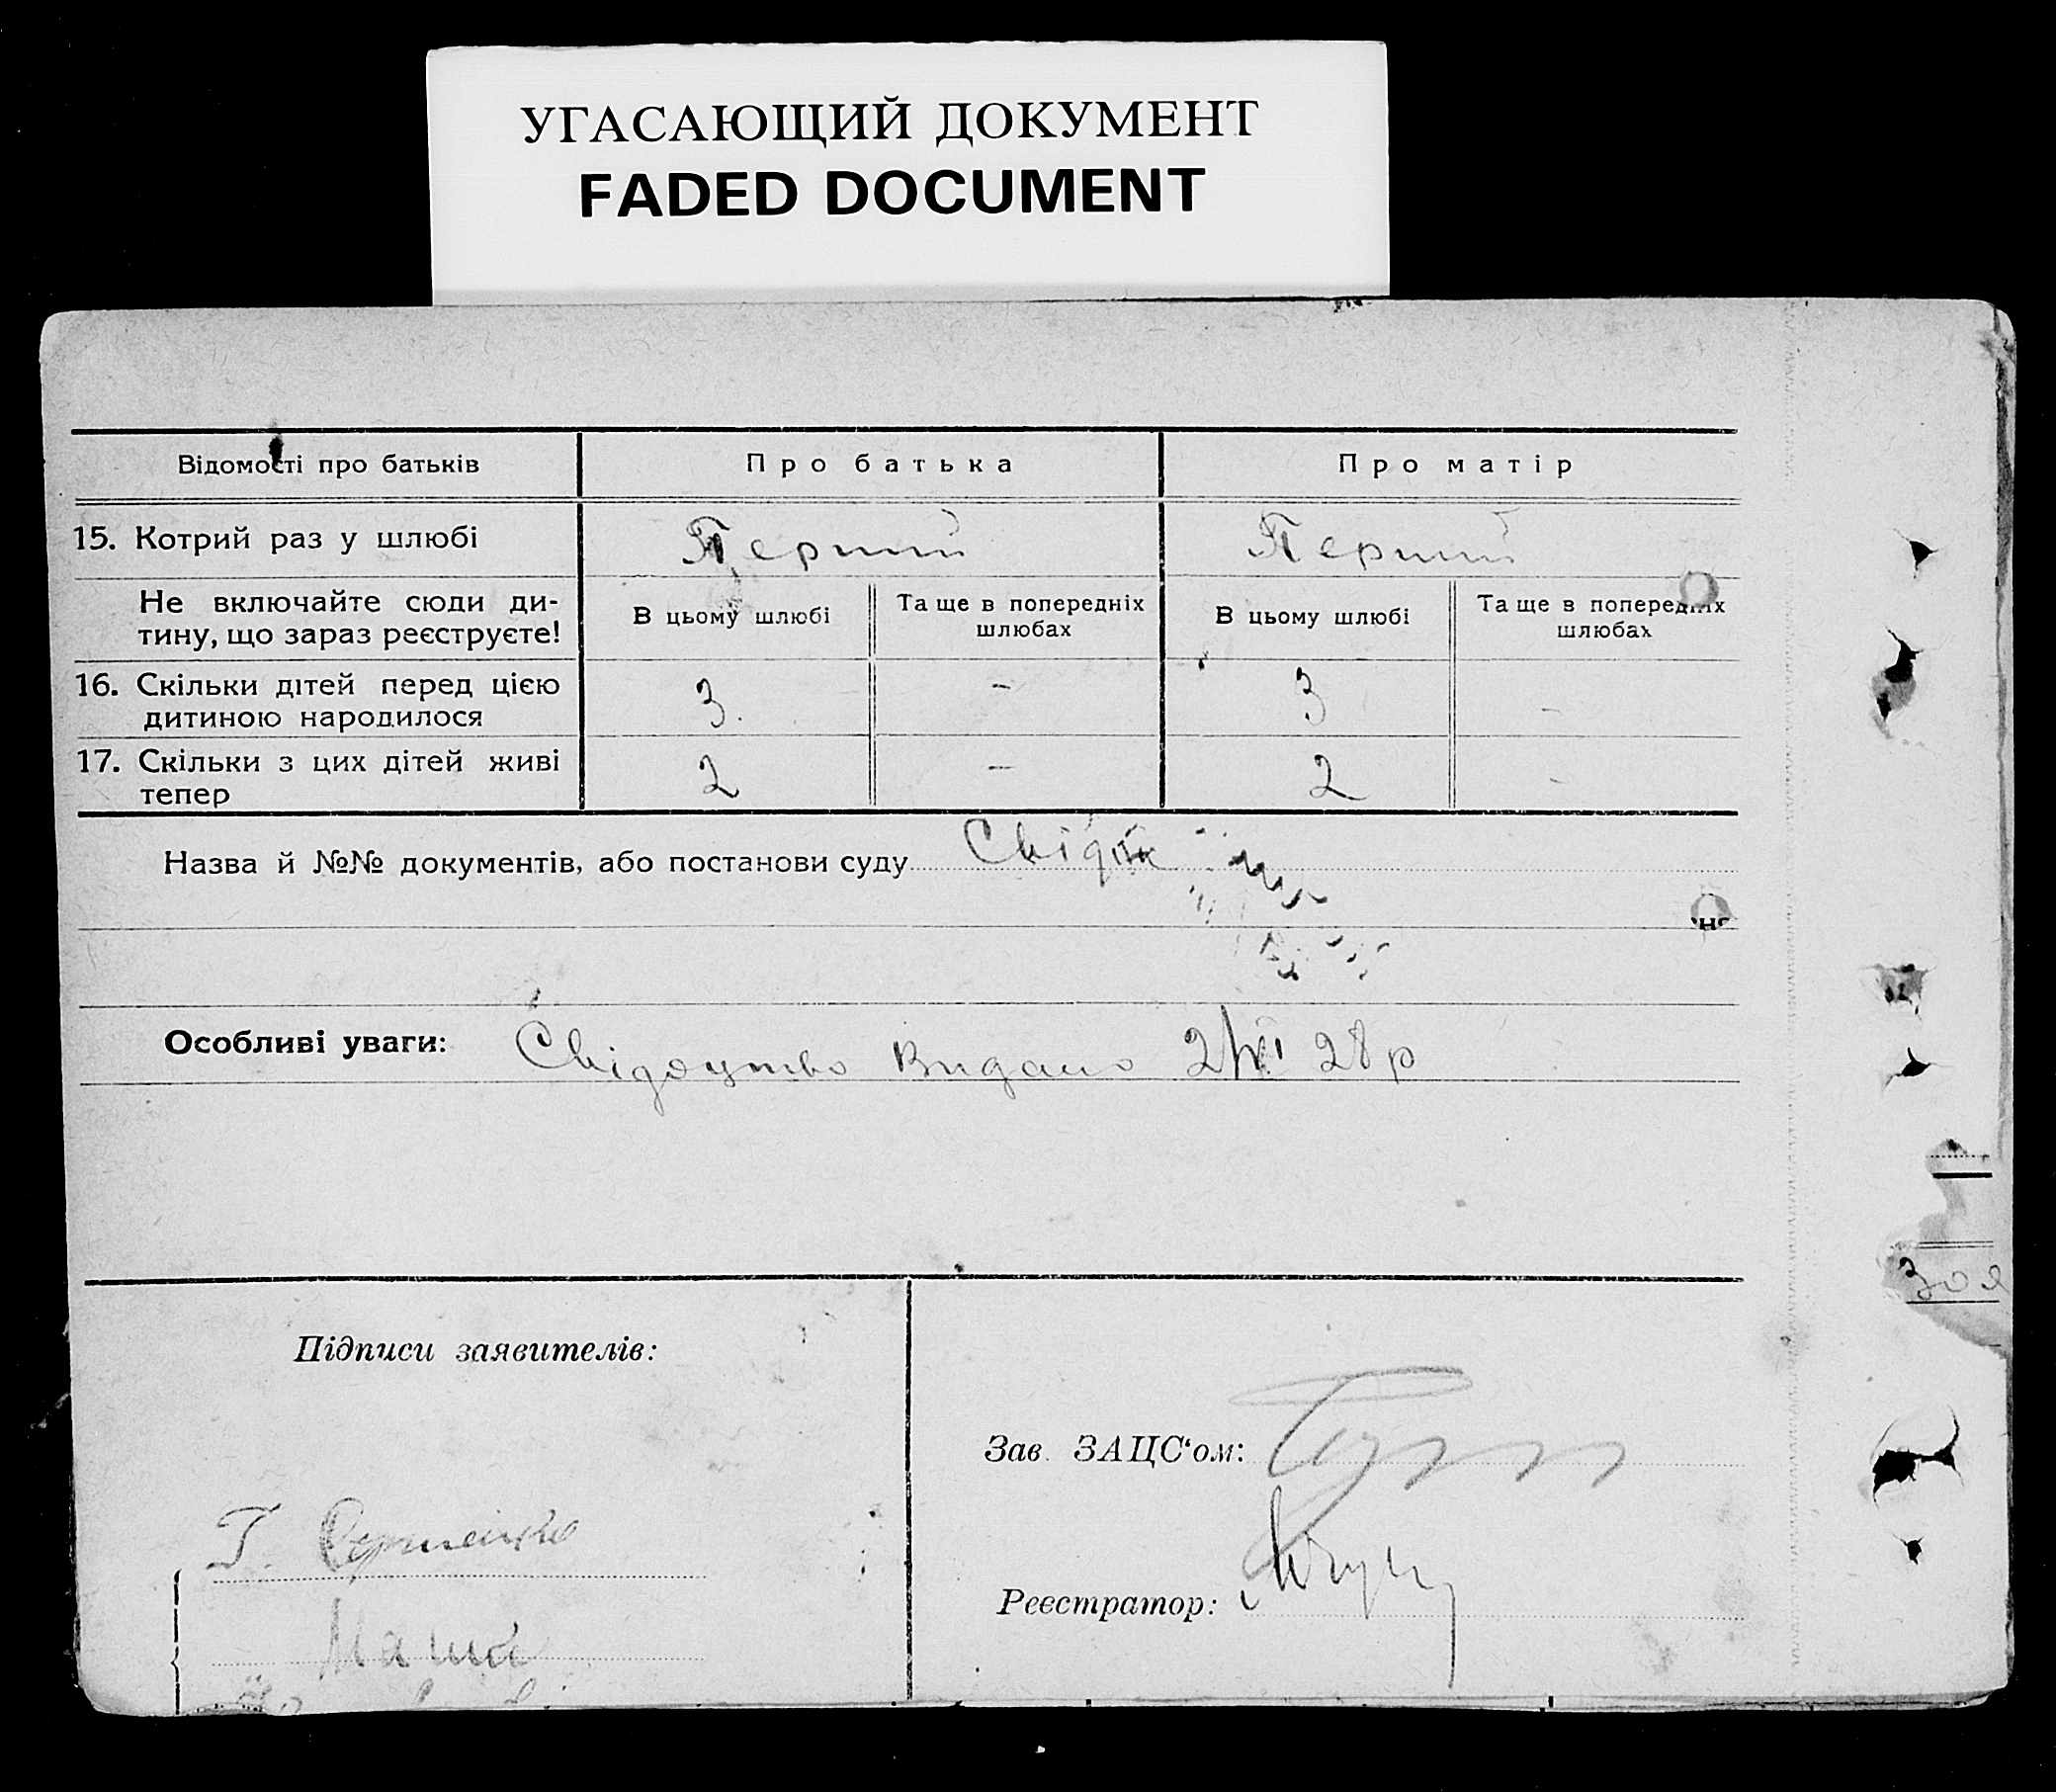 УГАСАЮЩИЙ ДОКУМЕНТ
FADED DOCUMENT
Відомості про батьків
Про батька
Про матір
15. Котрий раз у шлюбі
Перший
Перший
Не включайте сюди ди-
тину, що зараз реєструєте!
В цьому шлюбі
Та ще в попередніх
шлюбах
В цьому шлюбі
Та ще в попередніх
шлюбах
16. Скільки дітей перед цією
дитиною народилося
3.
–
3
–
17. Скільки з цих дітей живі
тепер
2
–
2
–
Назва й №№ документів, або постанови суду
Особливі уваги: Свідоцтво видано 28 р
Зоя
Підписи заявителів:
Зав. ЗАЦС‘ом:
Г.
Реєстратор: